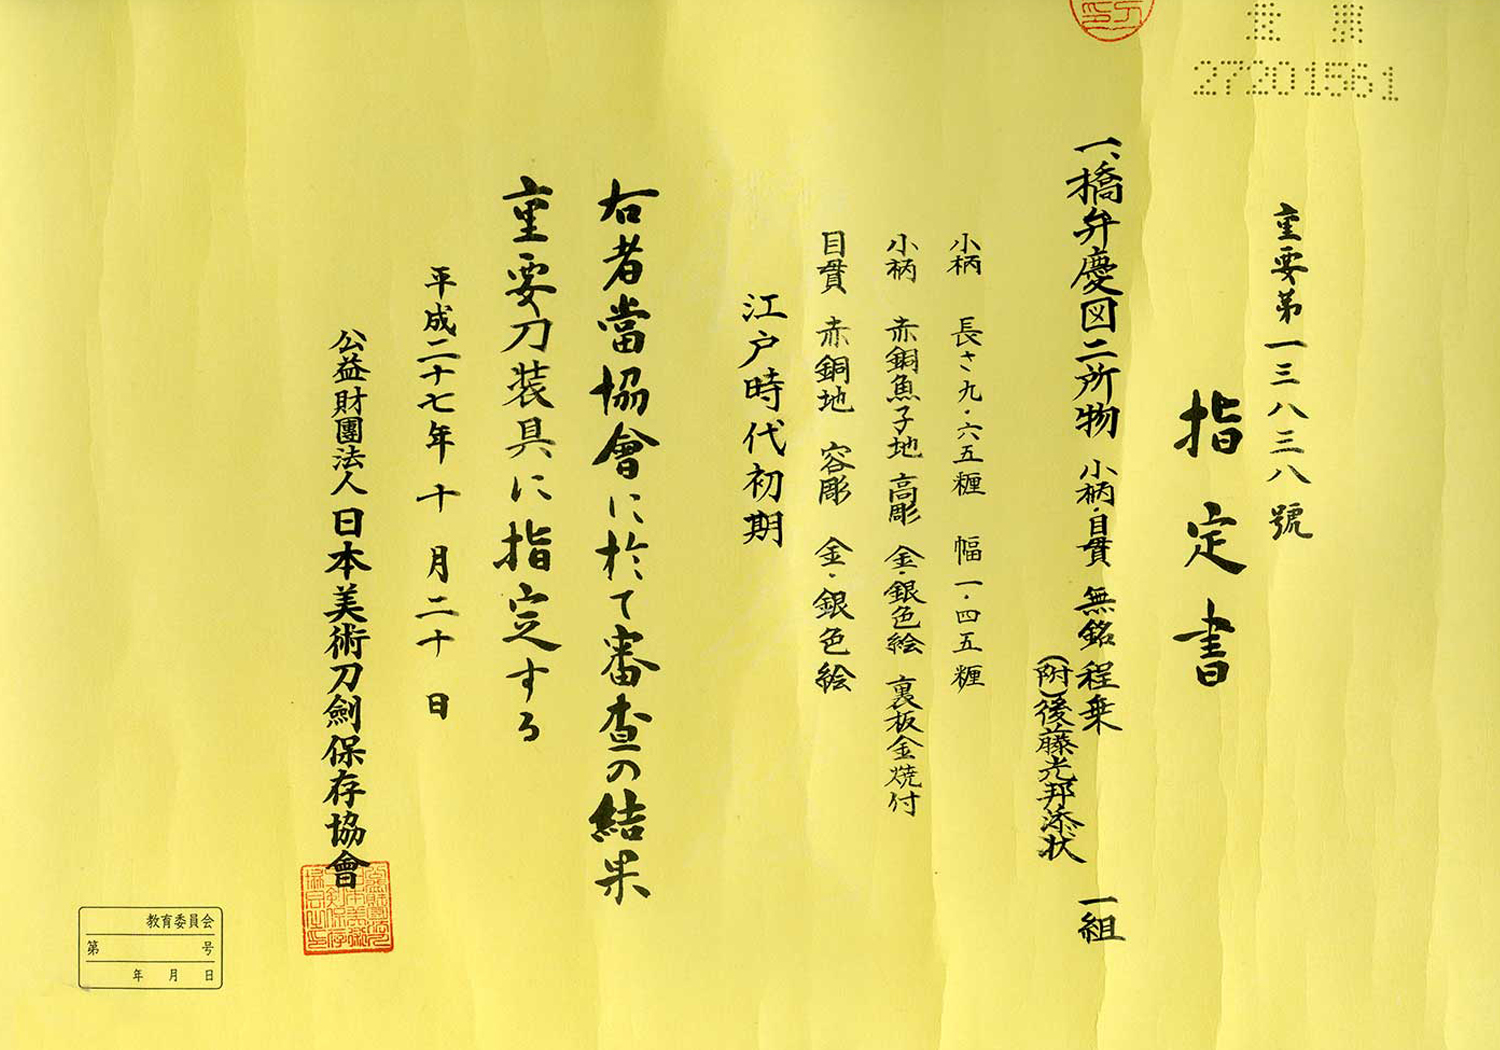 重要
27201561
重要第一三八三八號
指定書
一、橋弁慶図二所物 小柄・目貫 無銘 程乗 一組
(附)後藤光邦添状
小柄 長さ九・六五糎 幅一・四五糎
小柄 赤銅魚子地 高彫 金・銀色絵 裏板金焼付
目貫 赤銅地 容彫 金・銀色絵
江戸時代初期
右者當協會に於て審査の結果
重要刀装具に指定する
平成二十七年十月二十日
公益財團法人日本美術刀劍保存協會
教育委員会
第 号
年 月 日